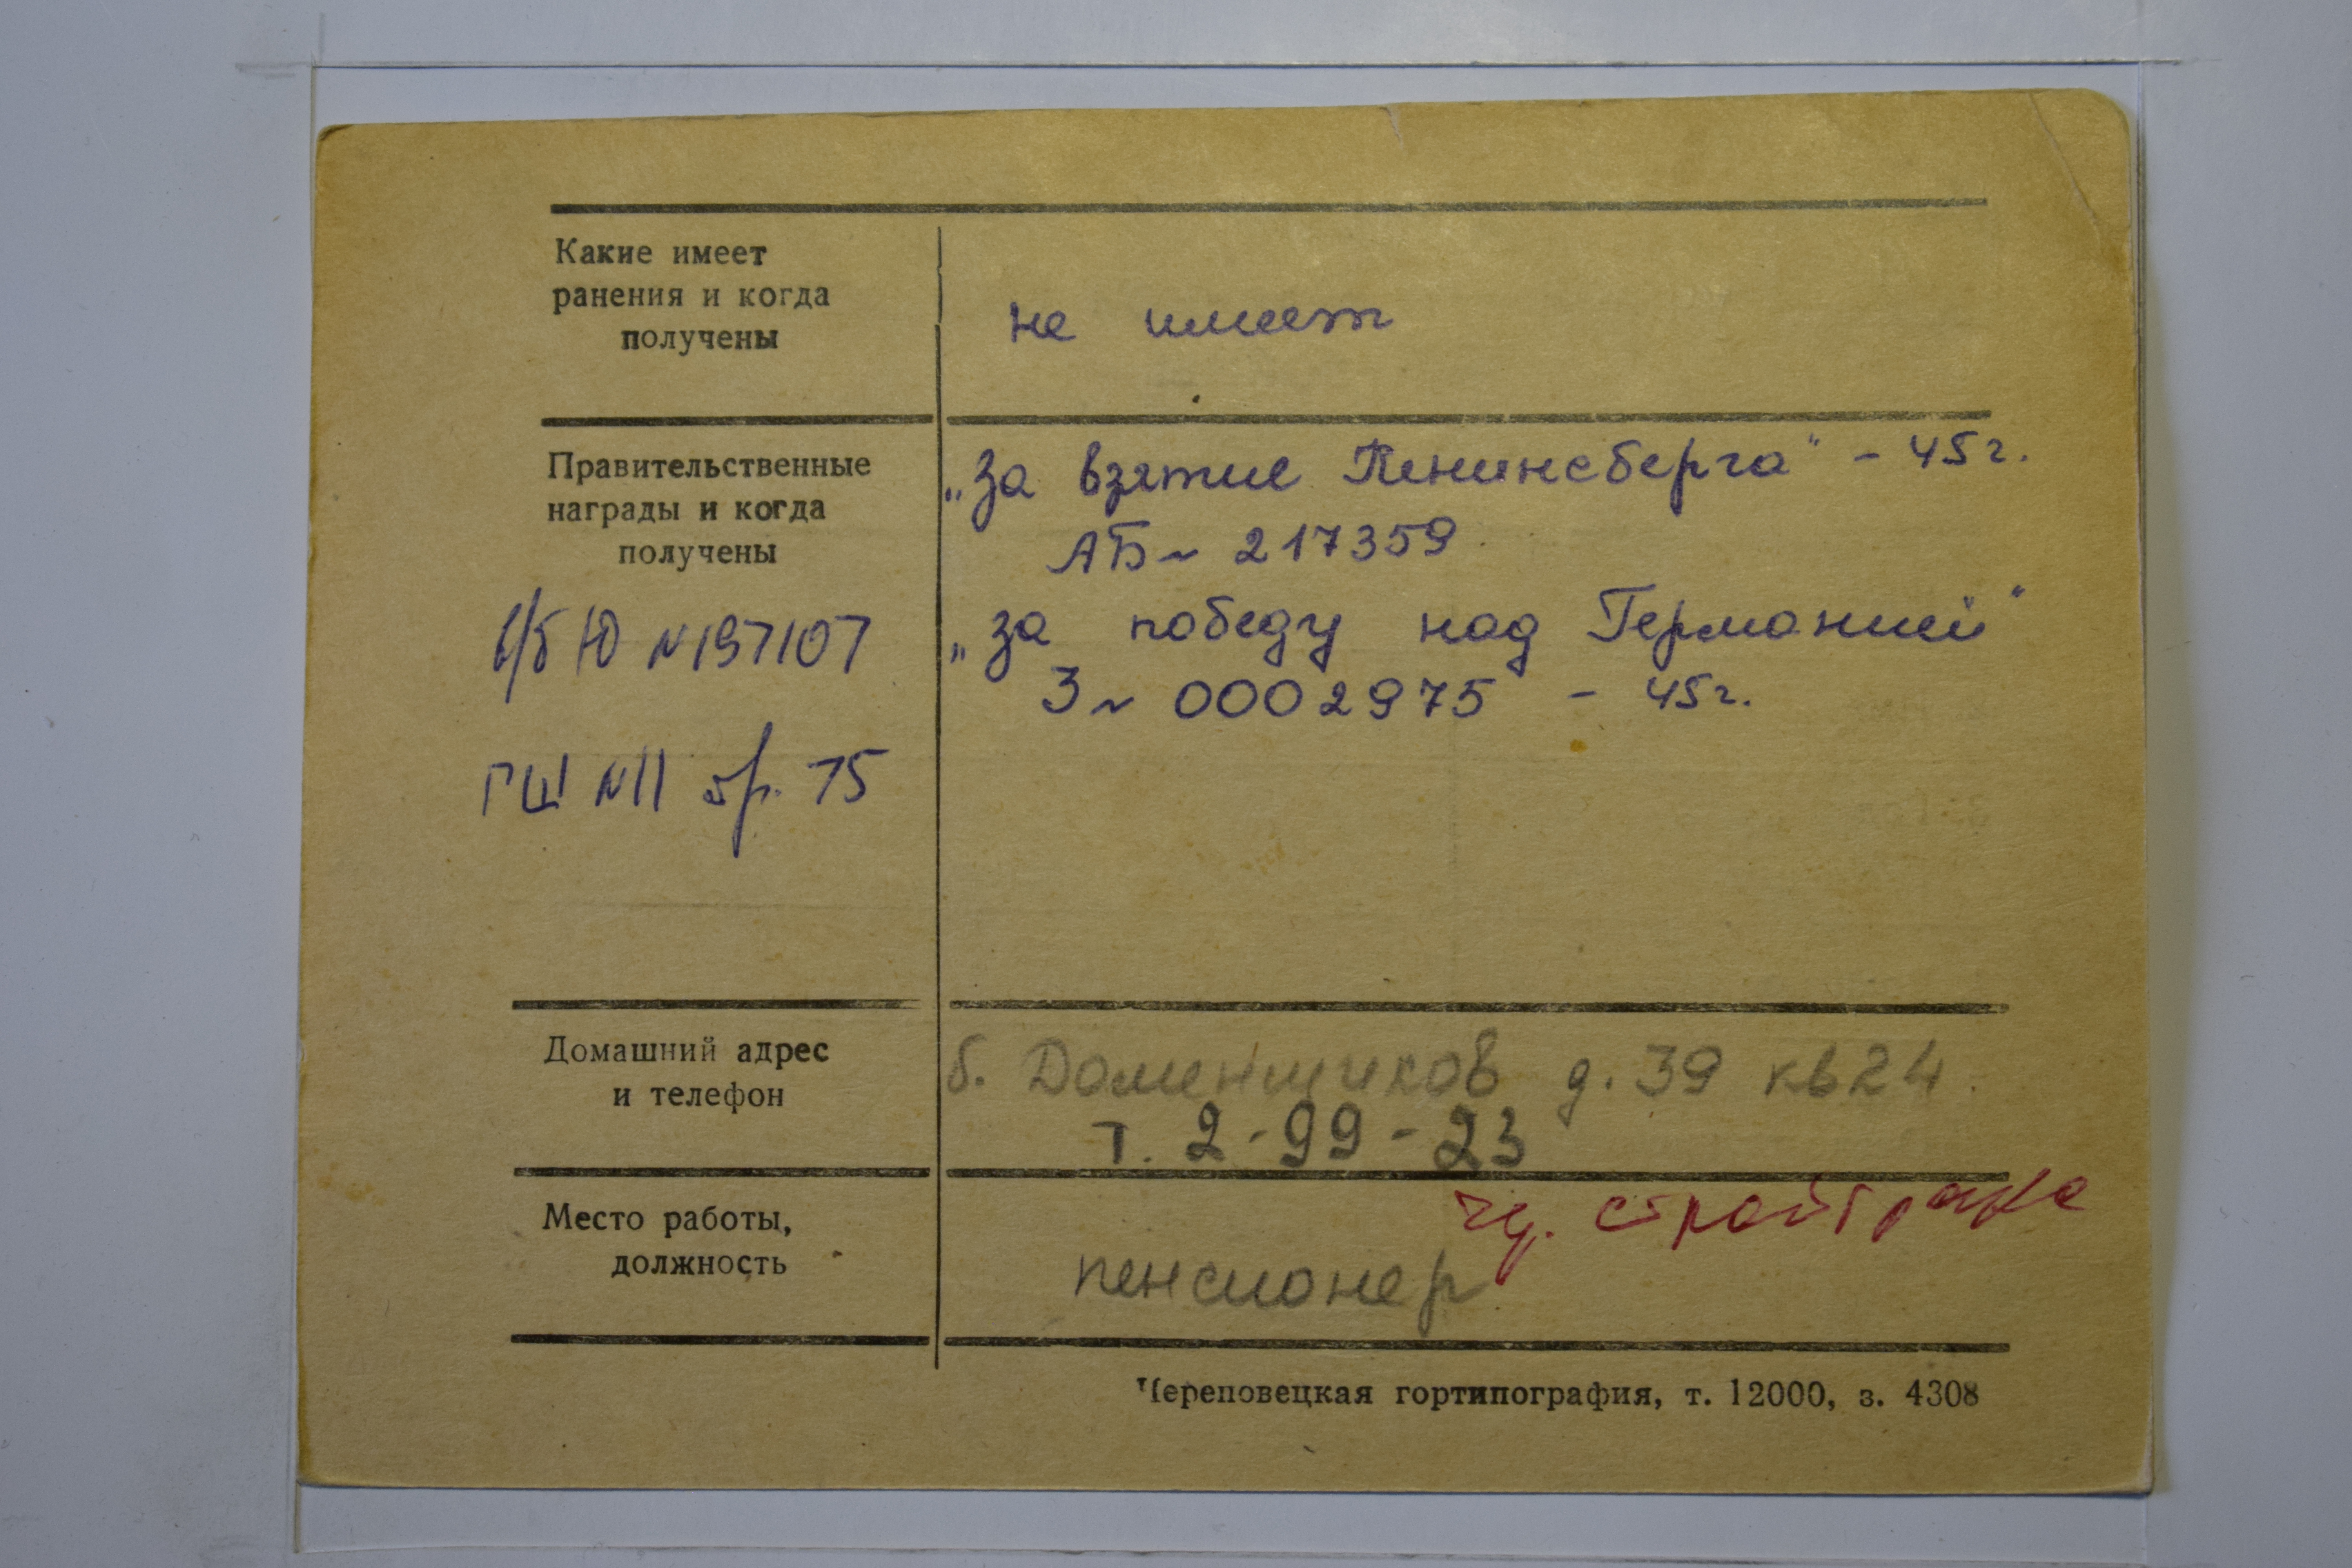 Какие имеет
ранения и когда
получены
не имеет
Правительственные
награды и когда
получены
„За взятие Кенинсберга" - 45 г.
АБ № 217359
„за победу над Германией"
З № 0002975 - 45 г.
в/б Ю №197107
ГШ №11 бр. 75
Домашний адрес
и телефон
б. Доменщиков д. 39 кв 24
т. 2-99-23
Место работы,
должность
пенсионер
Череповецкая гортипография, т. 12000, з. 4308